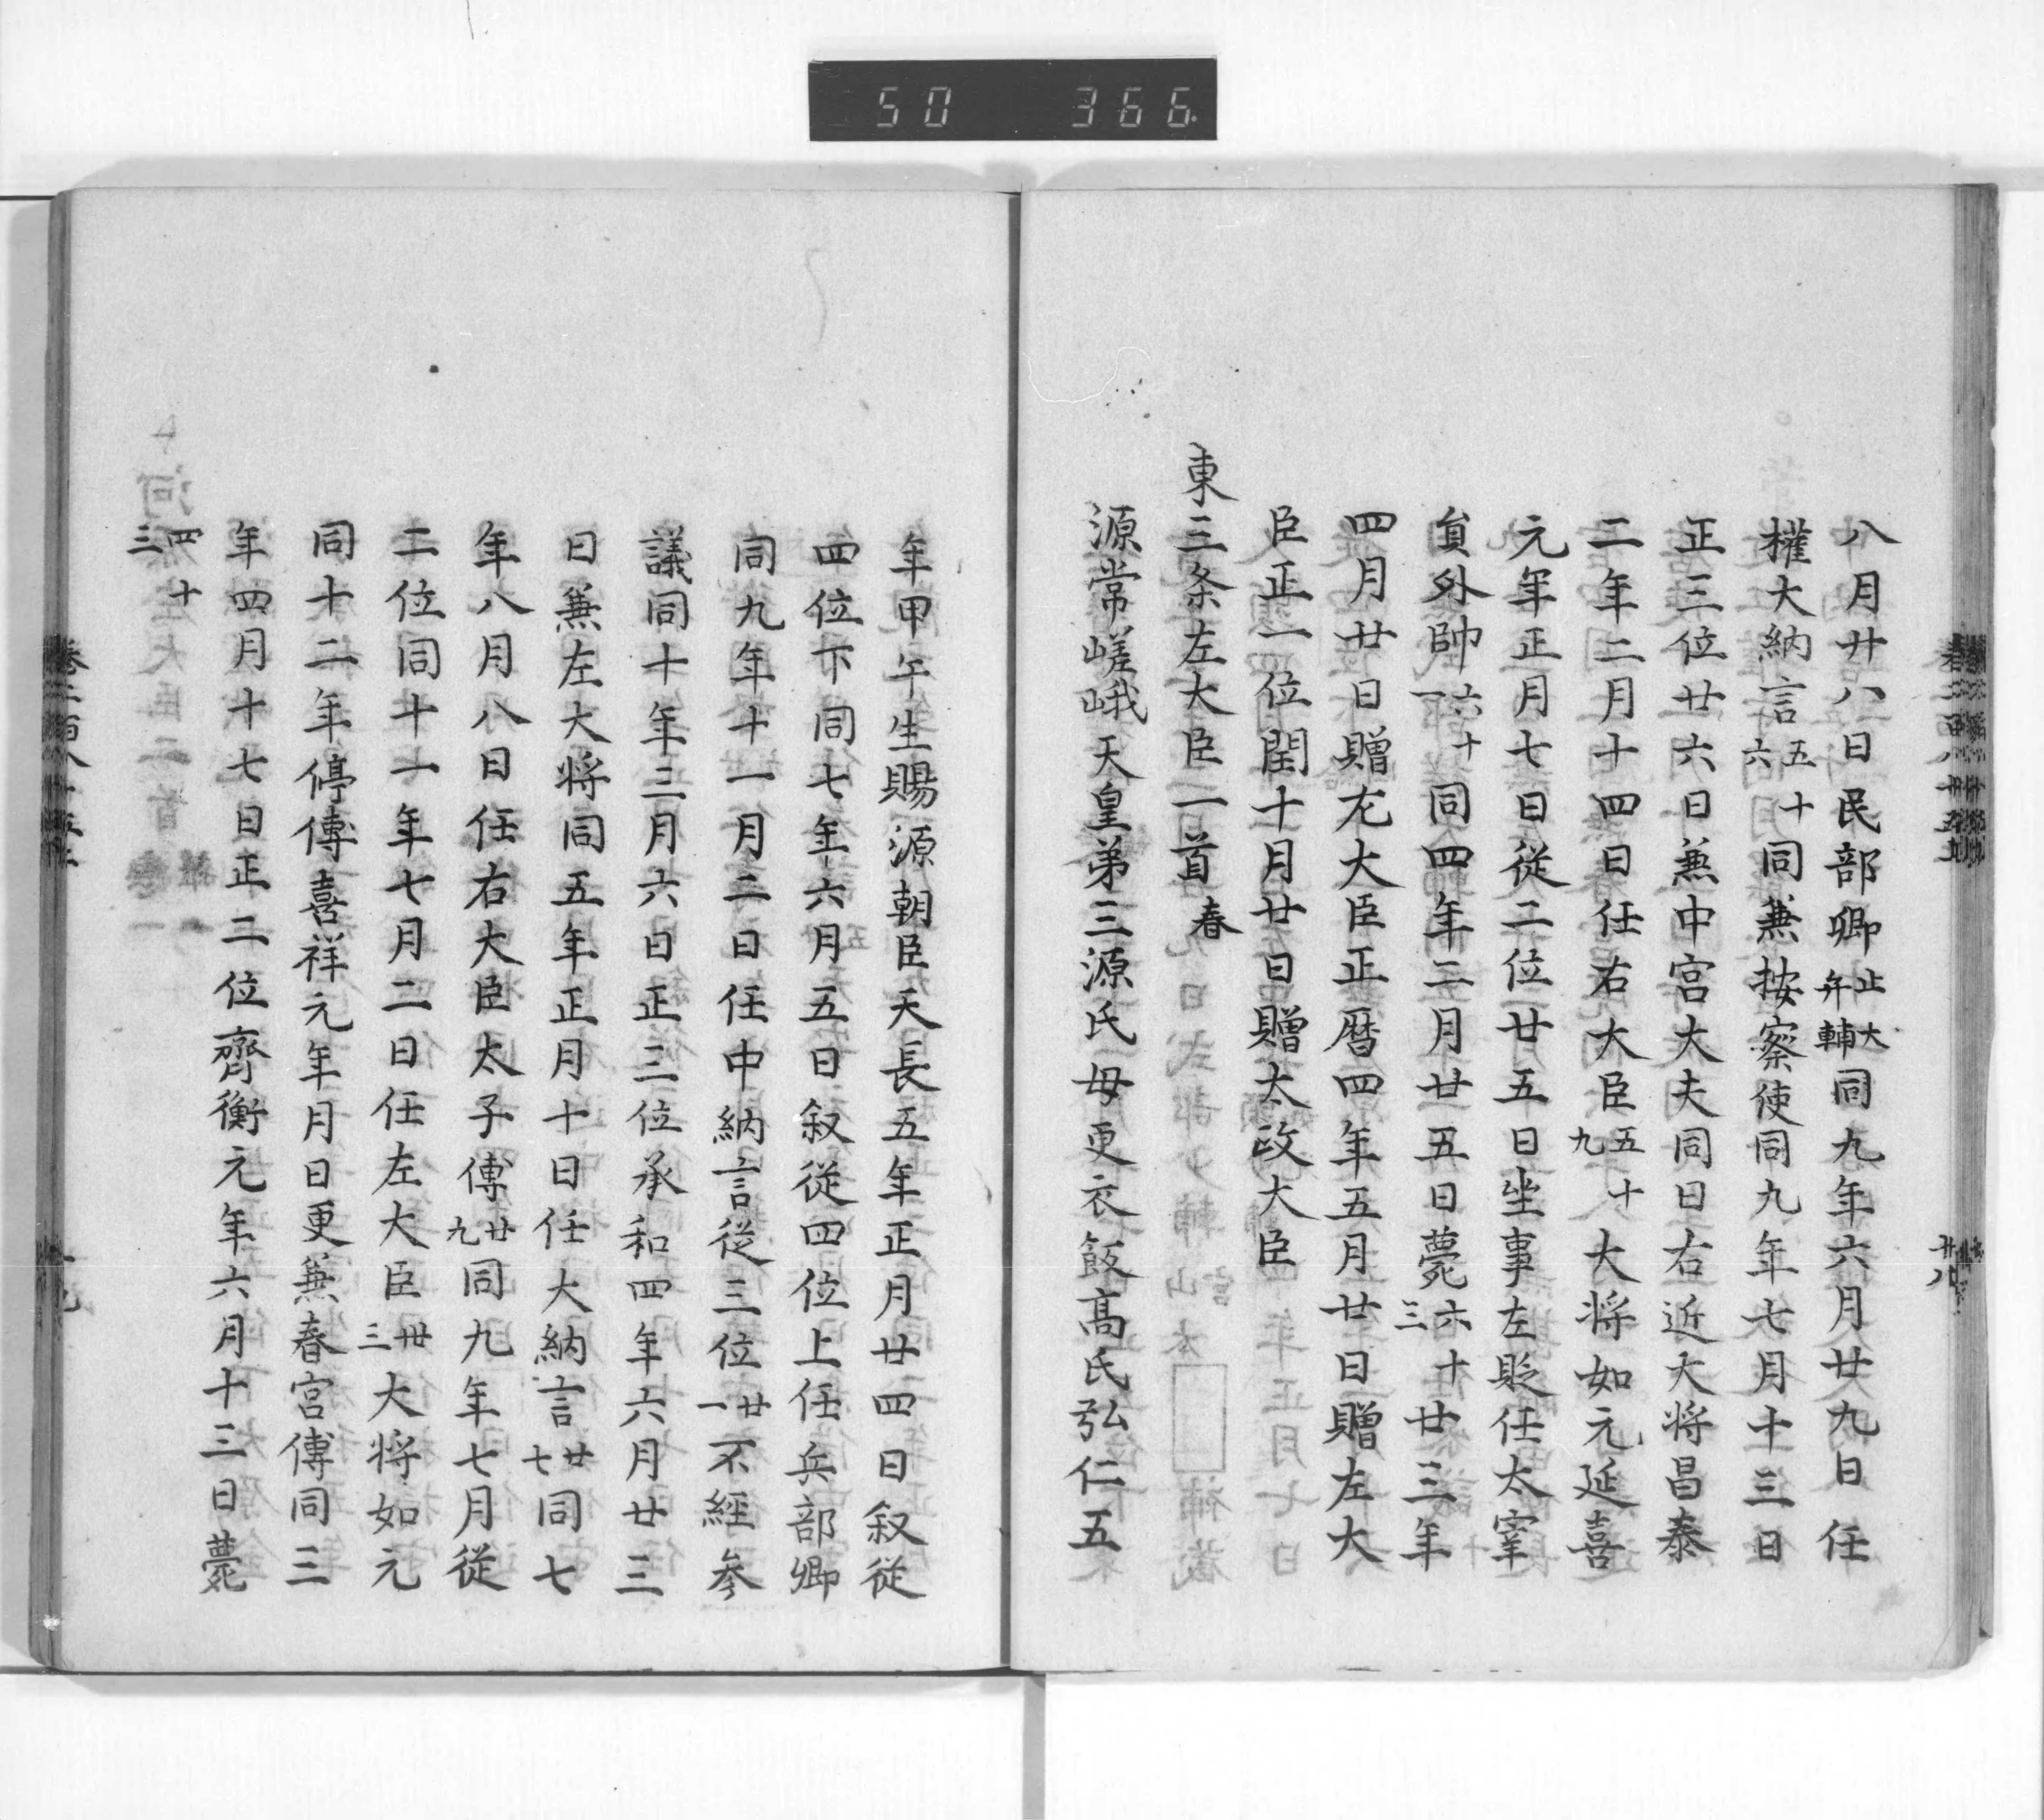 50 366
八月廿八日民部卿止大弁輔同九年六月廿九日任
權大納言五十六同兼按察使同九年七月十三日
正三位廿六日兼中宮大夫同日右近大将昌泰
二年二月十四日任右大臣五十九大将如元延喜
元年正月七日従二位廿五日坐事左貶任太宰
員外帥六十一同四年二月廿五日薨六十三廿三年
四月廿日贈尢大臣正暦四年五月廿日贈左大
臣正一位閏十月廿日贈太政大臣
東三条左大臣一首春
源常嵯峨天皇弟三源氏母更衣飯高氏弘仁五
年甲午生賜源朝臣天長五年正月廿四日叙従
四位下同七年六月五日叙従四位上任兵部卿
同九年十一月二日任中納言従三位廿一不經参
議同十年三月六日正三位承和四年六月廿三
日兼左大将同五年正月十日任大納言廿七同七
年八月八日任右大臣太子傳廿九同九年七月従
二位同十一年七月二日任左大臣卅三大将如元
同十二年停傳喜祥元年月日更兼春宮傳同三
年四月十七日正二位齊衡元年六月十三日薨
四十三
廿八